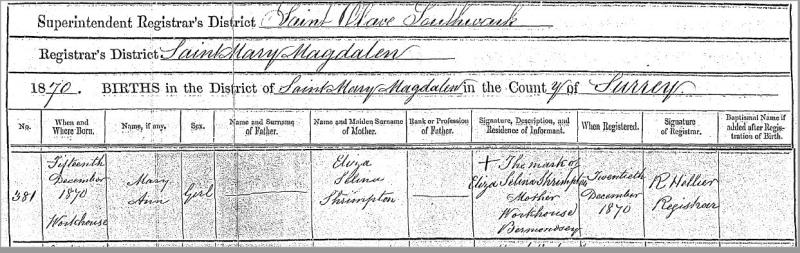 Superintendent Registrar's District Saint Olave Southwark
Registrar's District Saint Mary Magdalen
1870. BIRTHS in the District of Saint Mary Magdalen in the County of Surrey
No.
When and
Where Born.
Name, if any.
Sex.
Name and Surname
of Father.
Name and Maiden Surname
of Mother.
Rank or Profession
of Father.
Signature, Description, and
Residence of Informant.
When Registered.
Signature
of Registrar.
Baptismal Name if
added after Regis-
tration of Birth.
381
Fifteenth
December
1870
Workhouse
Mary
Ann
Girl
Eliza
Selina
Shrimpton
+ The mark of
Eliza Selina Shrimpton
Mother
Workhouse
Bermondsey
Twentieth
December
1870
R Hellier
Registrar